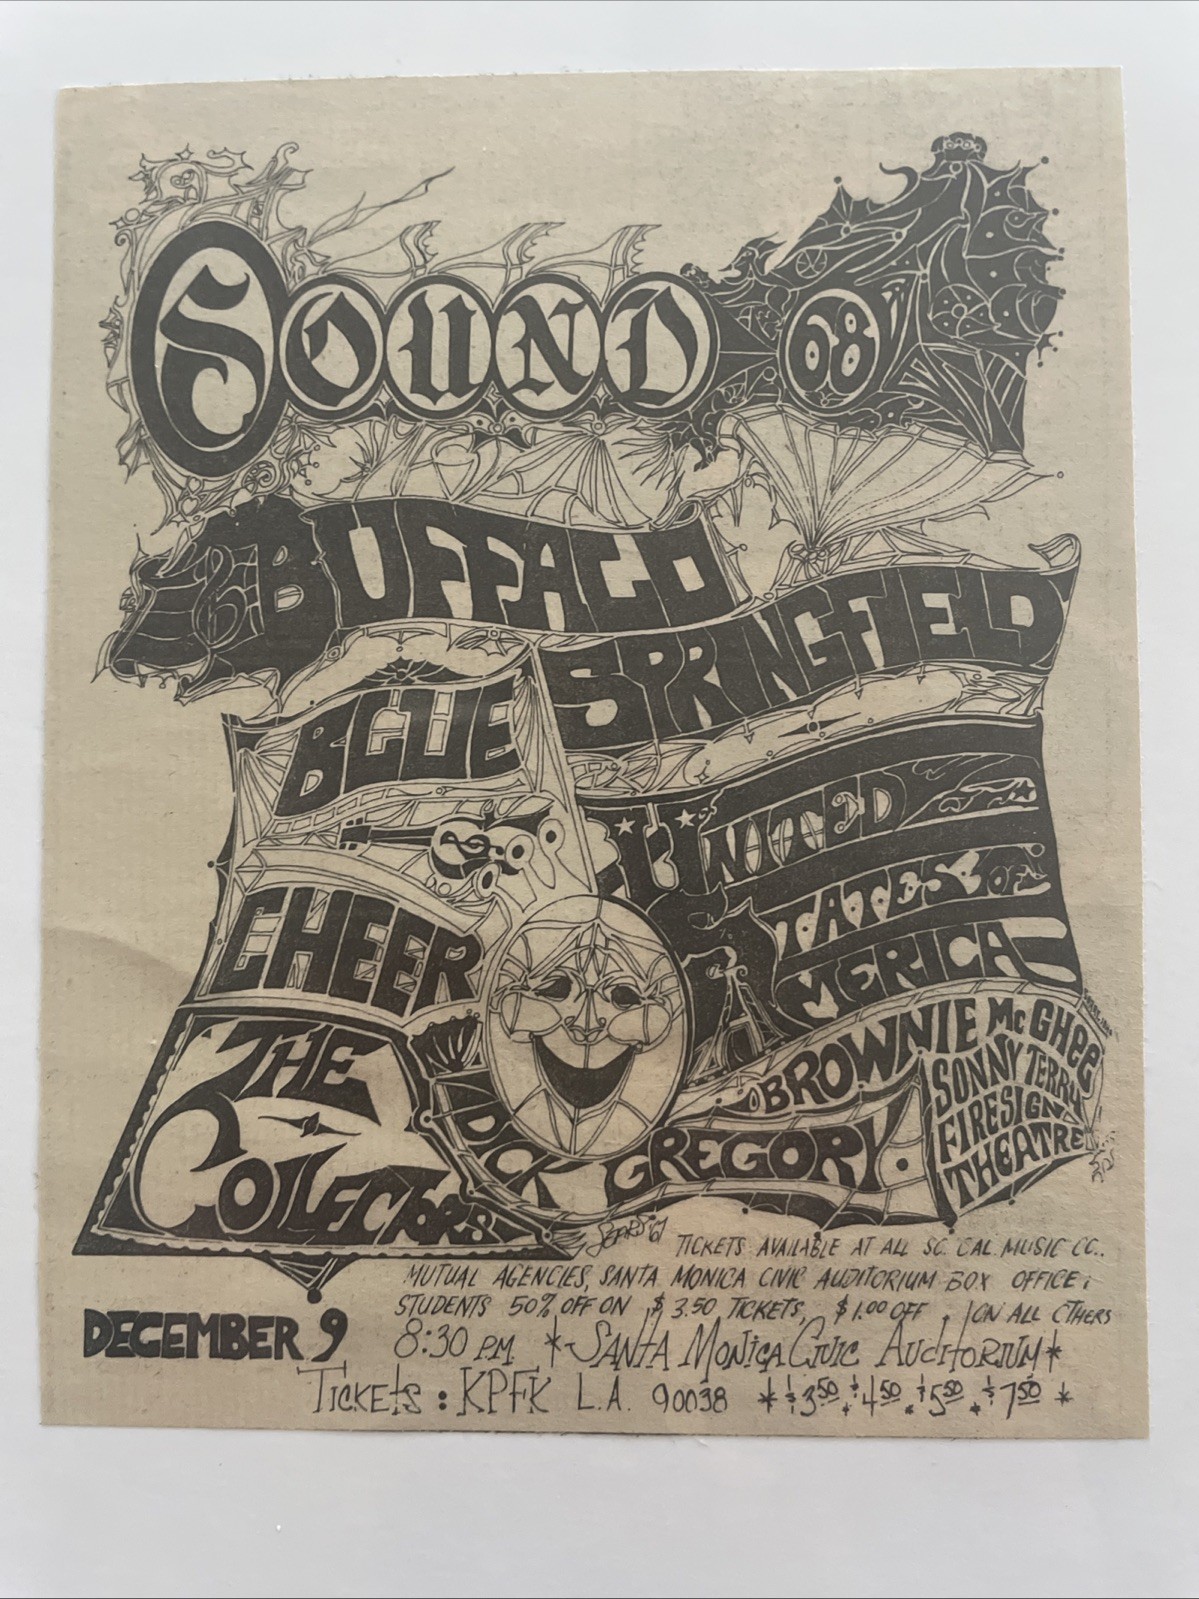 SOUND 68
BUFFALO
SPRINGFIELD
BLUE
CHEER
UNITED
STATES OF
AMERICA
THE
COLLECTORS
DICK GREGORY
BROWNIE McGHEE
SONNY TERRY
FIRESIGN
THEATRE
TICKETS AVAILABLE AT ALL SO. CAL. MUSIC CO.,
MUTUAL AGENCIES, SANTA MONICA CIVIC AUDITORIUM BOX OFFICE;
STUDENTS 50% OFF ON $3.50 TICKETS, $1.00 OFF ON ALL OTHERS
DECEMBER 9
8:30 P.M. *SANTA MONICA CIVIC AUDITORIUM*
TICKETS: KPFK L.A. 90038 * $3.50, $4.50, $5.50, $7.50 *